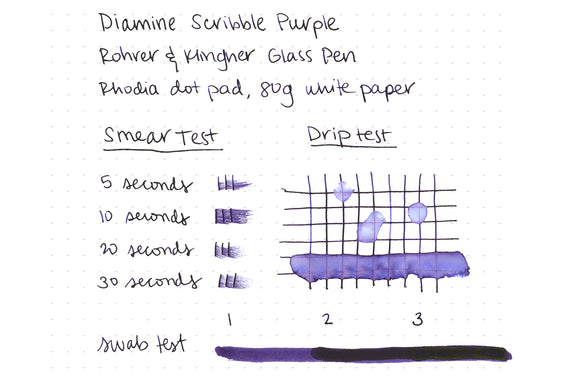 Diamine Scribble Purple
Rohrer & Klingner Glass Pen
Rhodia dot pad, 80g white paper
Smear Test
Drip test
5 seconds
10 seconds
20 seconds
30 seconds
1 2 3
swab test